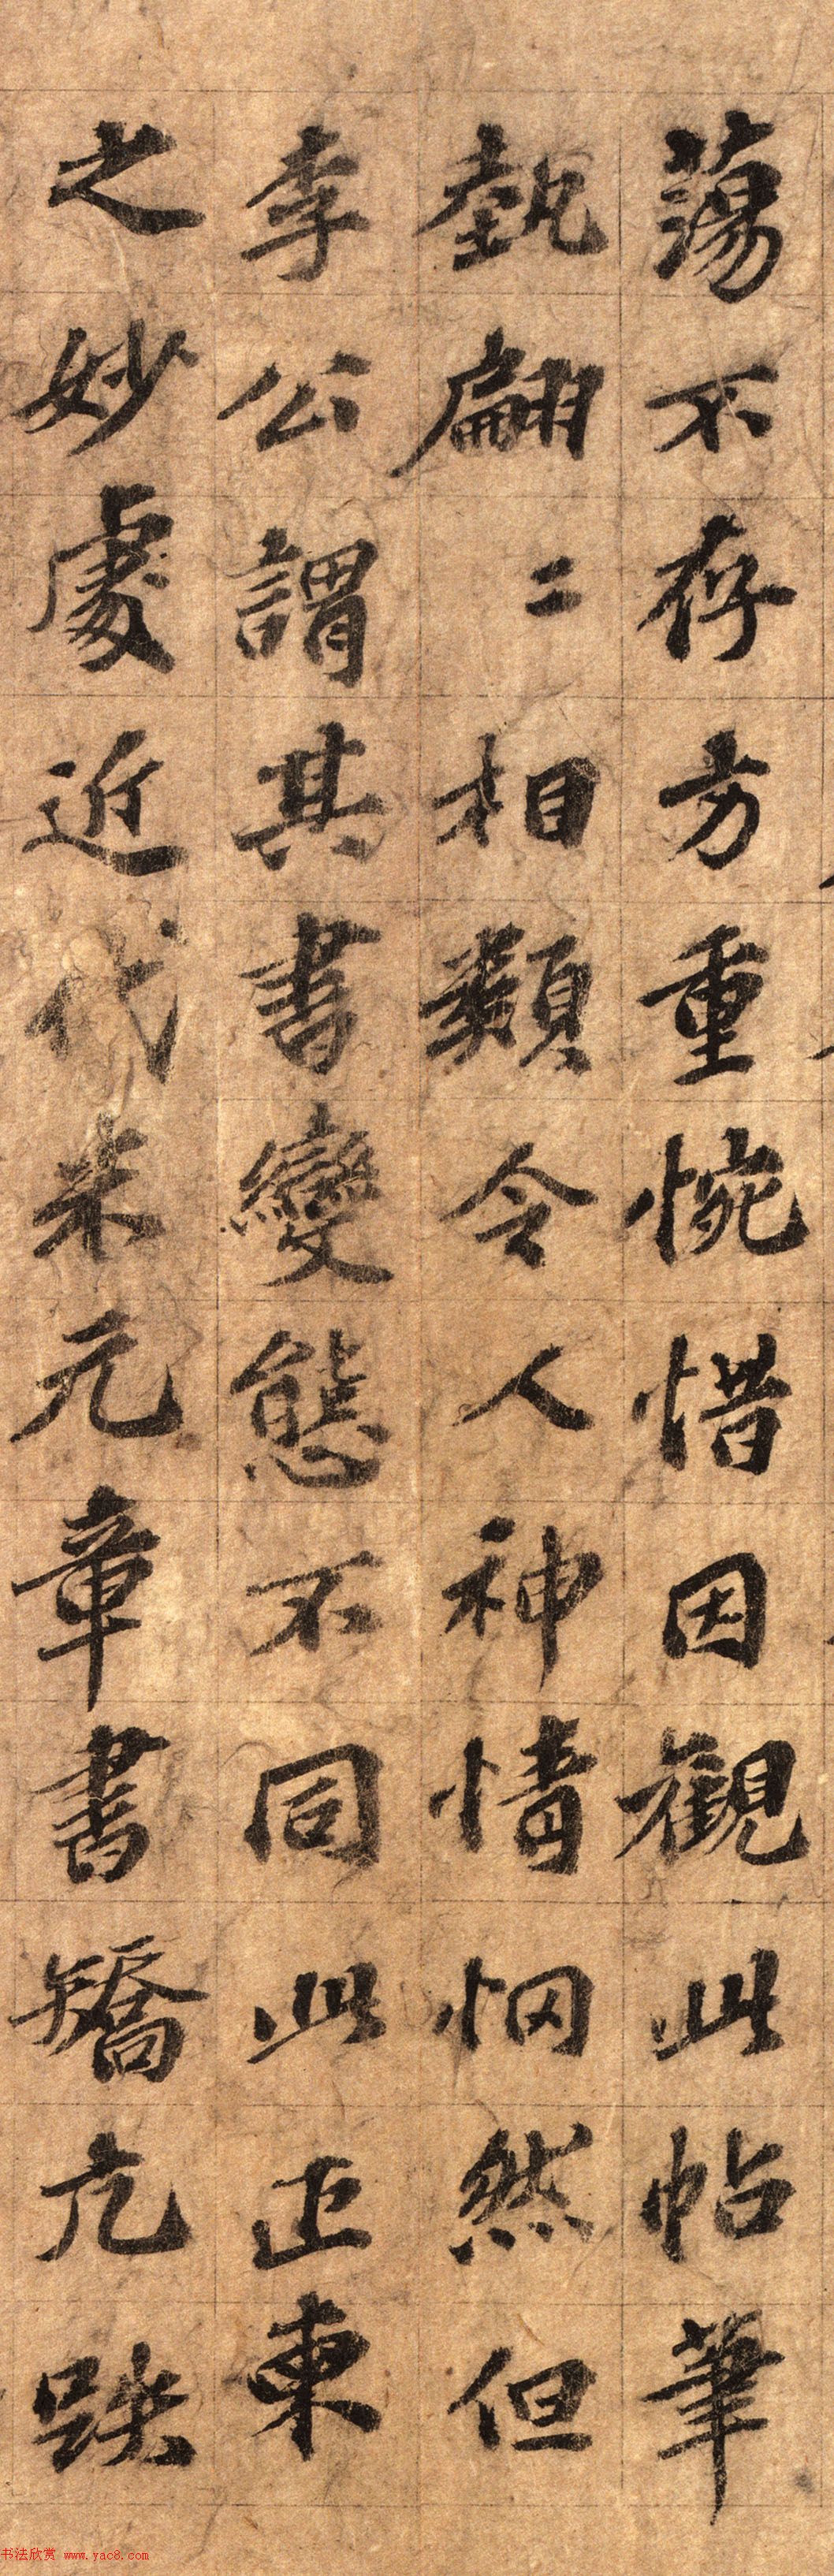 蕩不存方重惋惜因觀此帖筆
埶翩二相類令人神情惘然但
李公謂其書變態不同此正柬
之妙處近代米元章書矯亢跌
书法欣赏 www.yac8.com